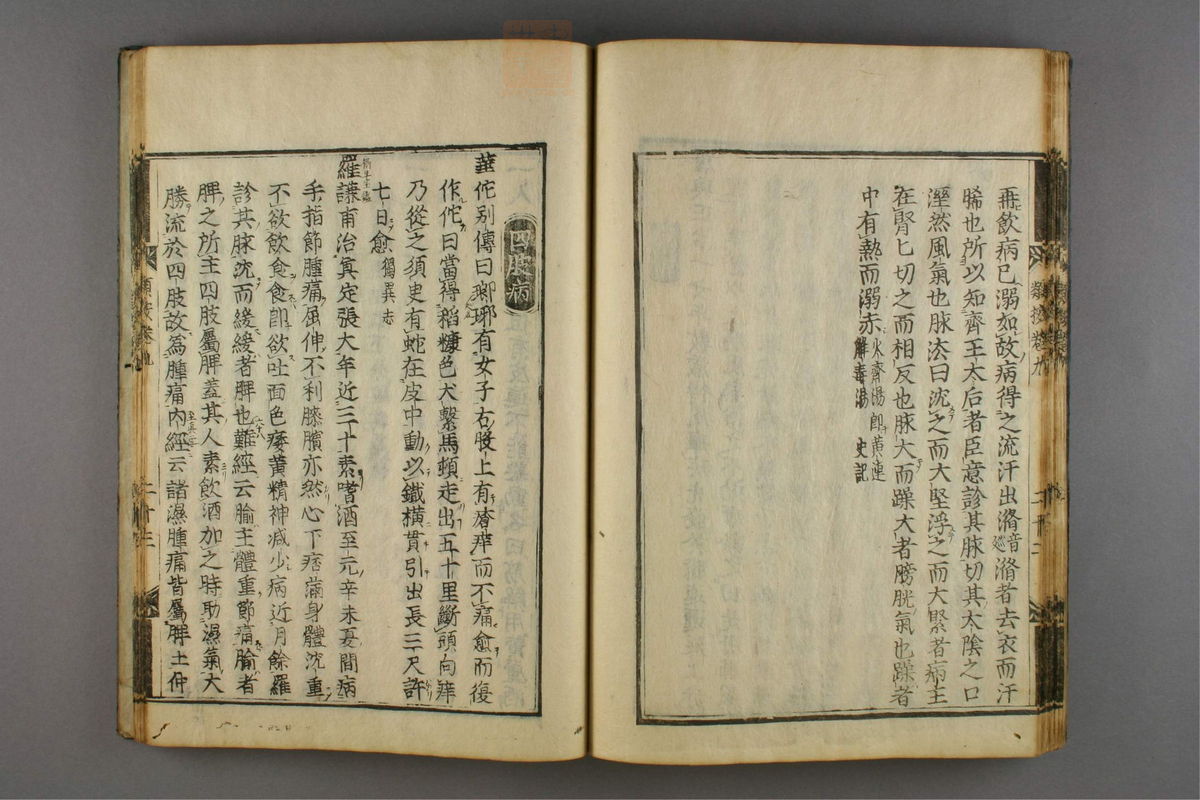 再飲病已溺如故病得之流汗出滫音巡滫者去衣而汗
晞也所以知齊王太后者臣意診其脉切其太陰之口
溼然風氣也脉法曰沈之而大堅浮之而大緊者病主
在腎匕切之而相反也脉大而躁大者膀胱氣也躁者
中有熱而溺赤火齊湯即黃連
解毒湯 史記
四肢病
華佗别傳曰琊琊有女子右股上有瘡痒而不痛愈而復
作佗曰當得稻糠色犬繫馬頓走出五十里斷頭向痒
乃從之須臾有蛇在皮中動以鐵橫貫引出長三尺許
七日愈獨異志
羅謙甫治真定張大年近三十素嗜酒至元辛未夏間病
手指節腫痛屈伸不利膝臏亦然心下痞滿身體沈重
不欲飲食食即欲吐面色痿黃精神减少病近月餘羅
診其脉沈而緩緩者脾也難經云腧主體重節痛腧者
脾之所主四肢屬脾蓋其人素飲酒加之時助濕氣大
勝流於四肢故為腫痛內經云諸濕腫痛皆屬脾土仲
類按卷九
二十三